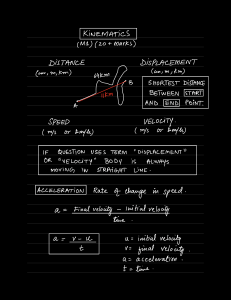 KINEMATICS
(M1) (20+ MARKS)
DISTANCE
(cm, m, km)
DISPLACEMENT
(cm, m, km)
B
4km
A
SHORTEST DISTANCE
BETWEEN START
AND END POINT.
SPEED
(m/s or km/h)
VELOCITY.
(m/s or km/h)
IF QUESTION USES TERM "DISPLACEMENT"
OR "VELOCITY" BODY IS ALWAYS
MOVING IN STRAIGHT LINE.
ACCELERATION Rate of change in speed.
a = Final velocity - initial velocity
time.
a = v - u
t
u = initial velocity
v = final velocity.
a = acceleration
t = time